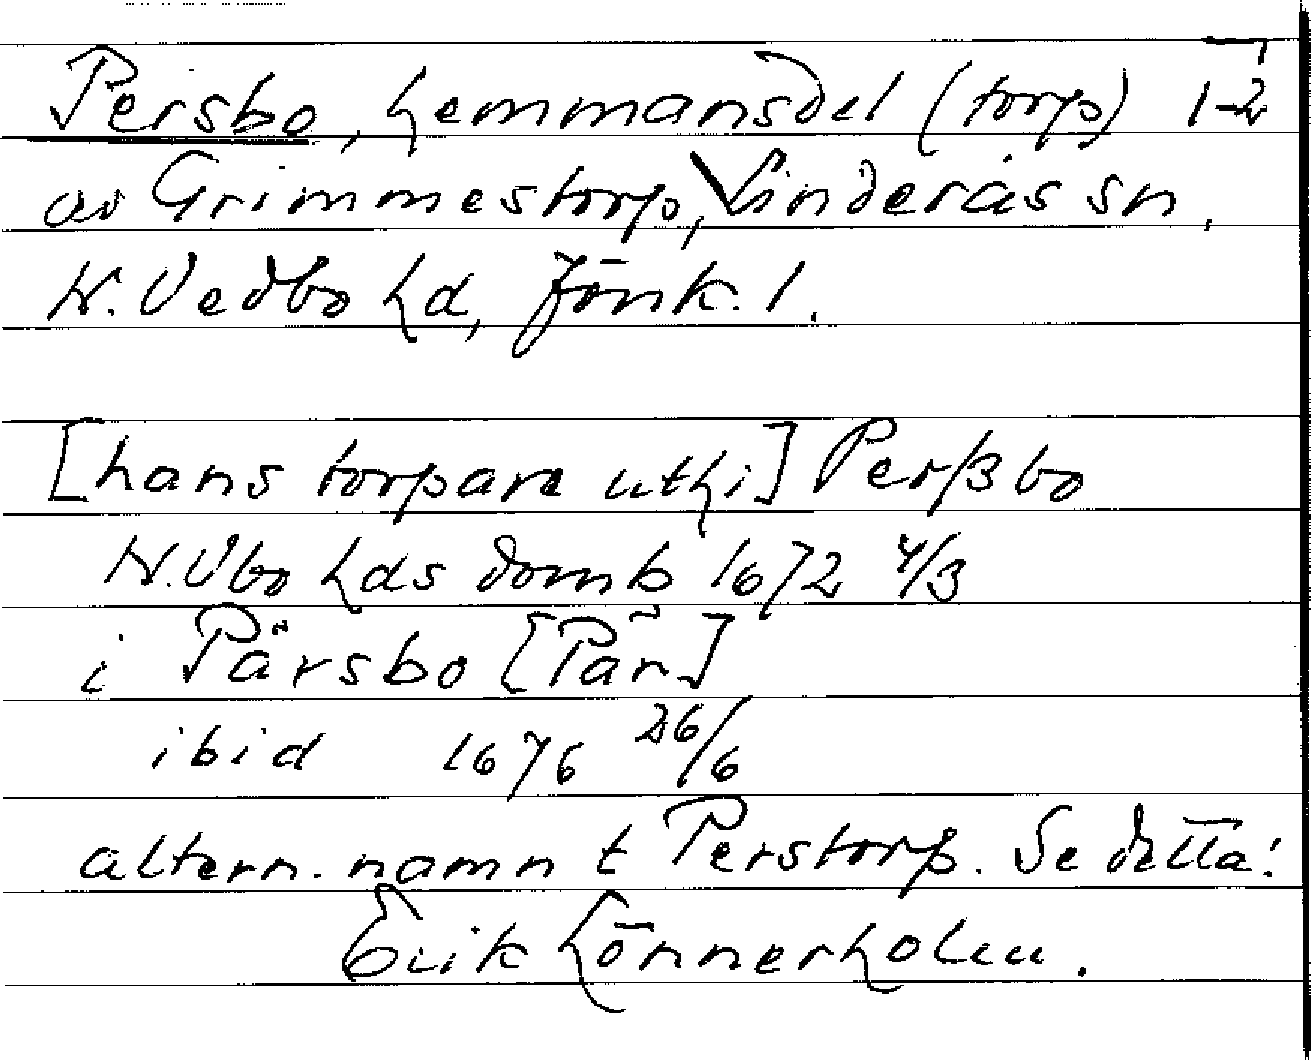 Persbo, hemmansdel (torp) 1-2
av Grimmestorp, Linderås sn,
N. Vedbo hd, Jönk. l.
[hans torpare uthi] Perßbo
N. Vbo hds domb 1672 4/3
i Pärsbo [Pär]
ibid 1676 26/6
altern. namn t Perstorp. Se detta!
Erik Lönnerholm.